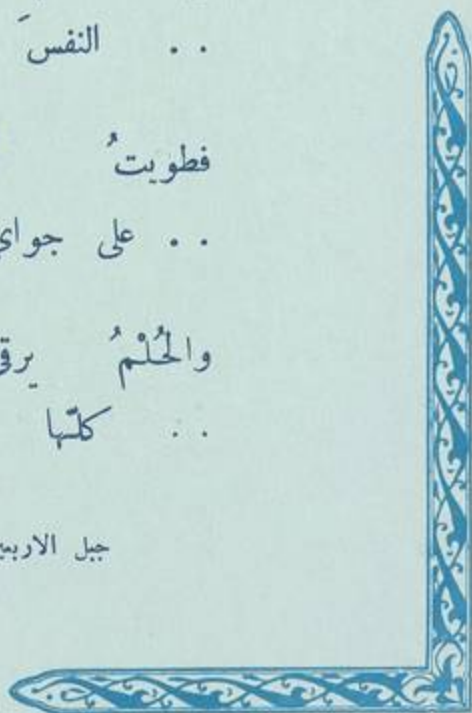 . . النفسَ
فطويتُ
. . على جواي
والحُلْمُ يرقى
. . كلّها
جبل الاربعين